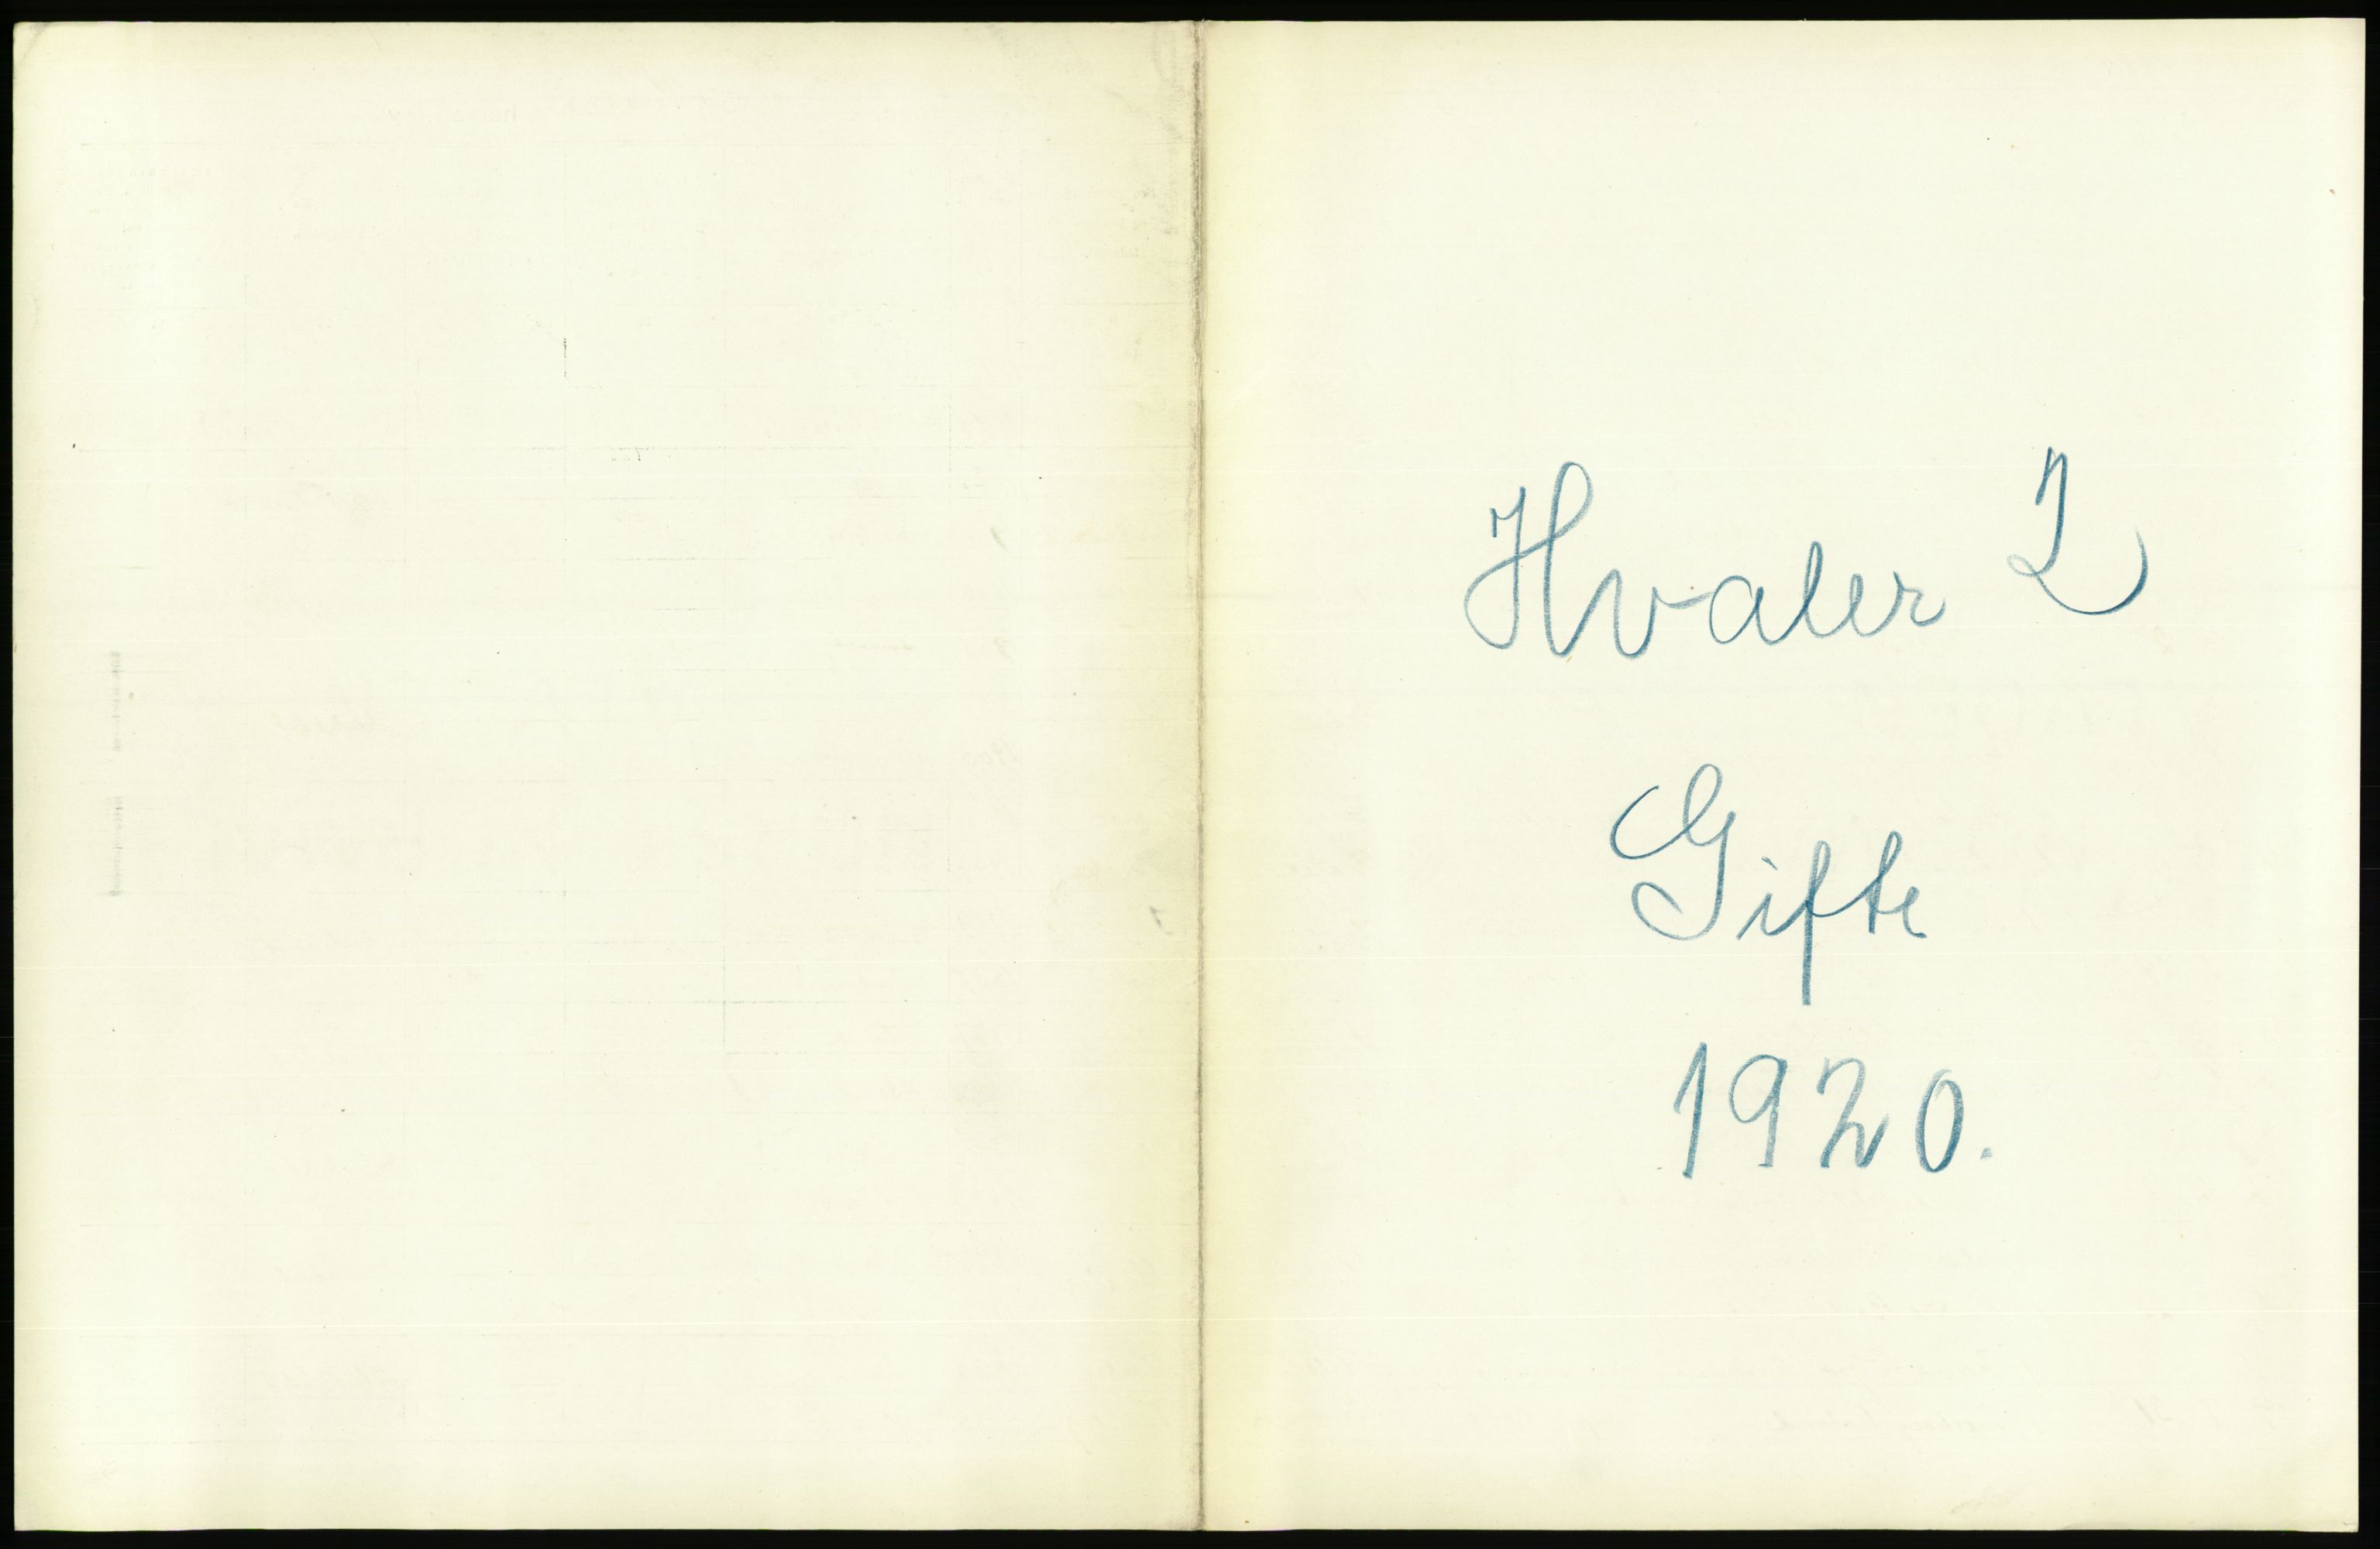 Hvaler 2
Gifte
1920.